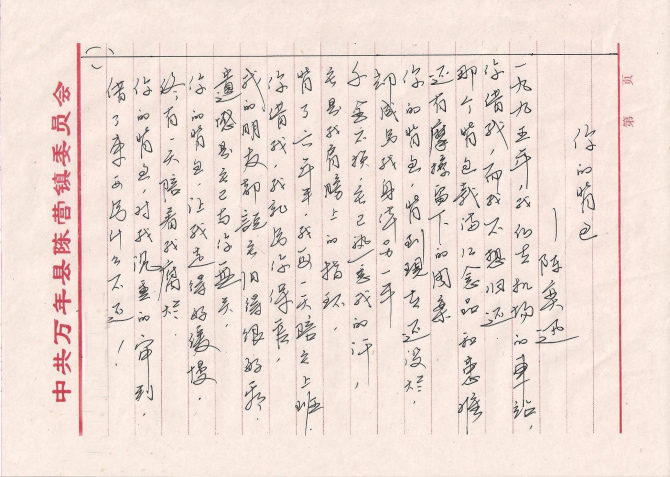 第 页
你的背包
—陈奕迅
一九九五年,我们在机场的车站,
你借我,而我不想归还.
那个背包载满纪念品和患难
还有摩擦留下的图案
你的背包,背到现在还没烂,
却成为我身体另一半
千金不换 它已熟悉我的汗,
它是我肩膀上的指环,
背了六年半,我每一天陪它上班.
你借我,我就为你保管,
我的朋友都说它旧得很好看,
遗憾是它已与你无关,
你的背包,让我走得好缓慢,
终有一天陪着我腐烂.
你的背包,对我沉重的审判,
借了东西为什么不还!
中共万年县陈营镇委员会